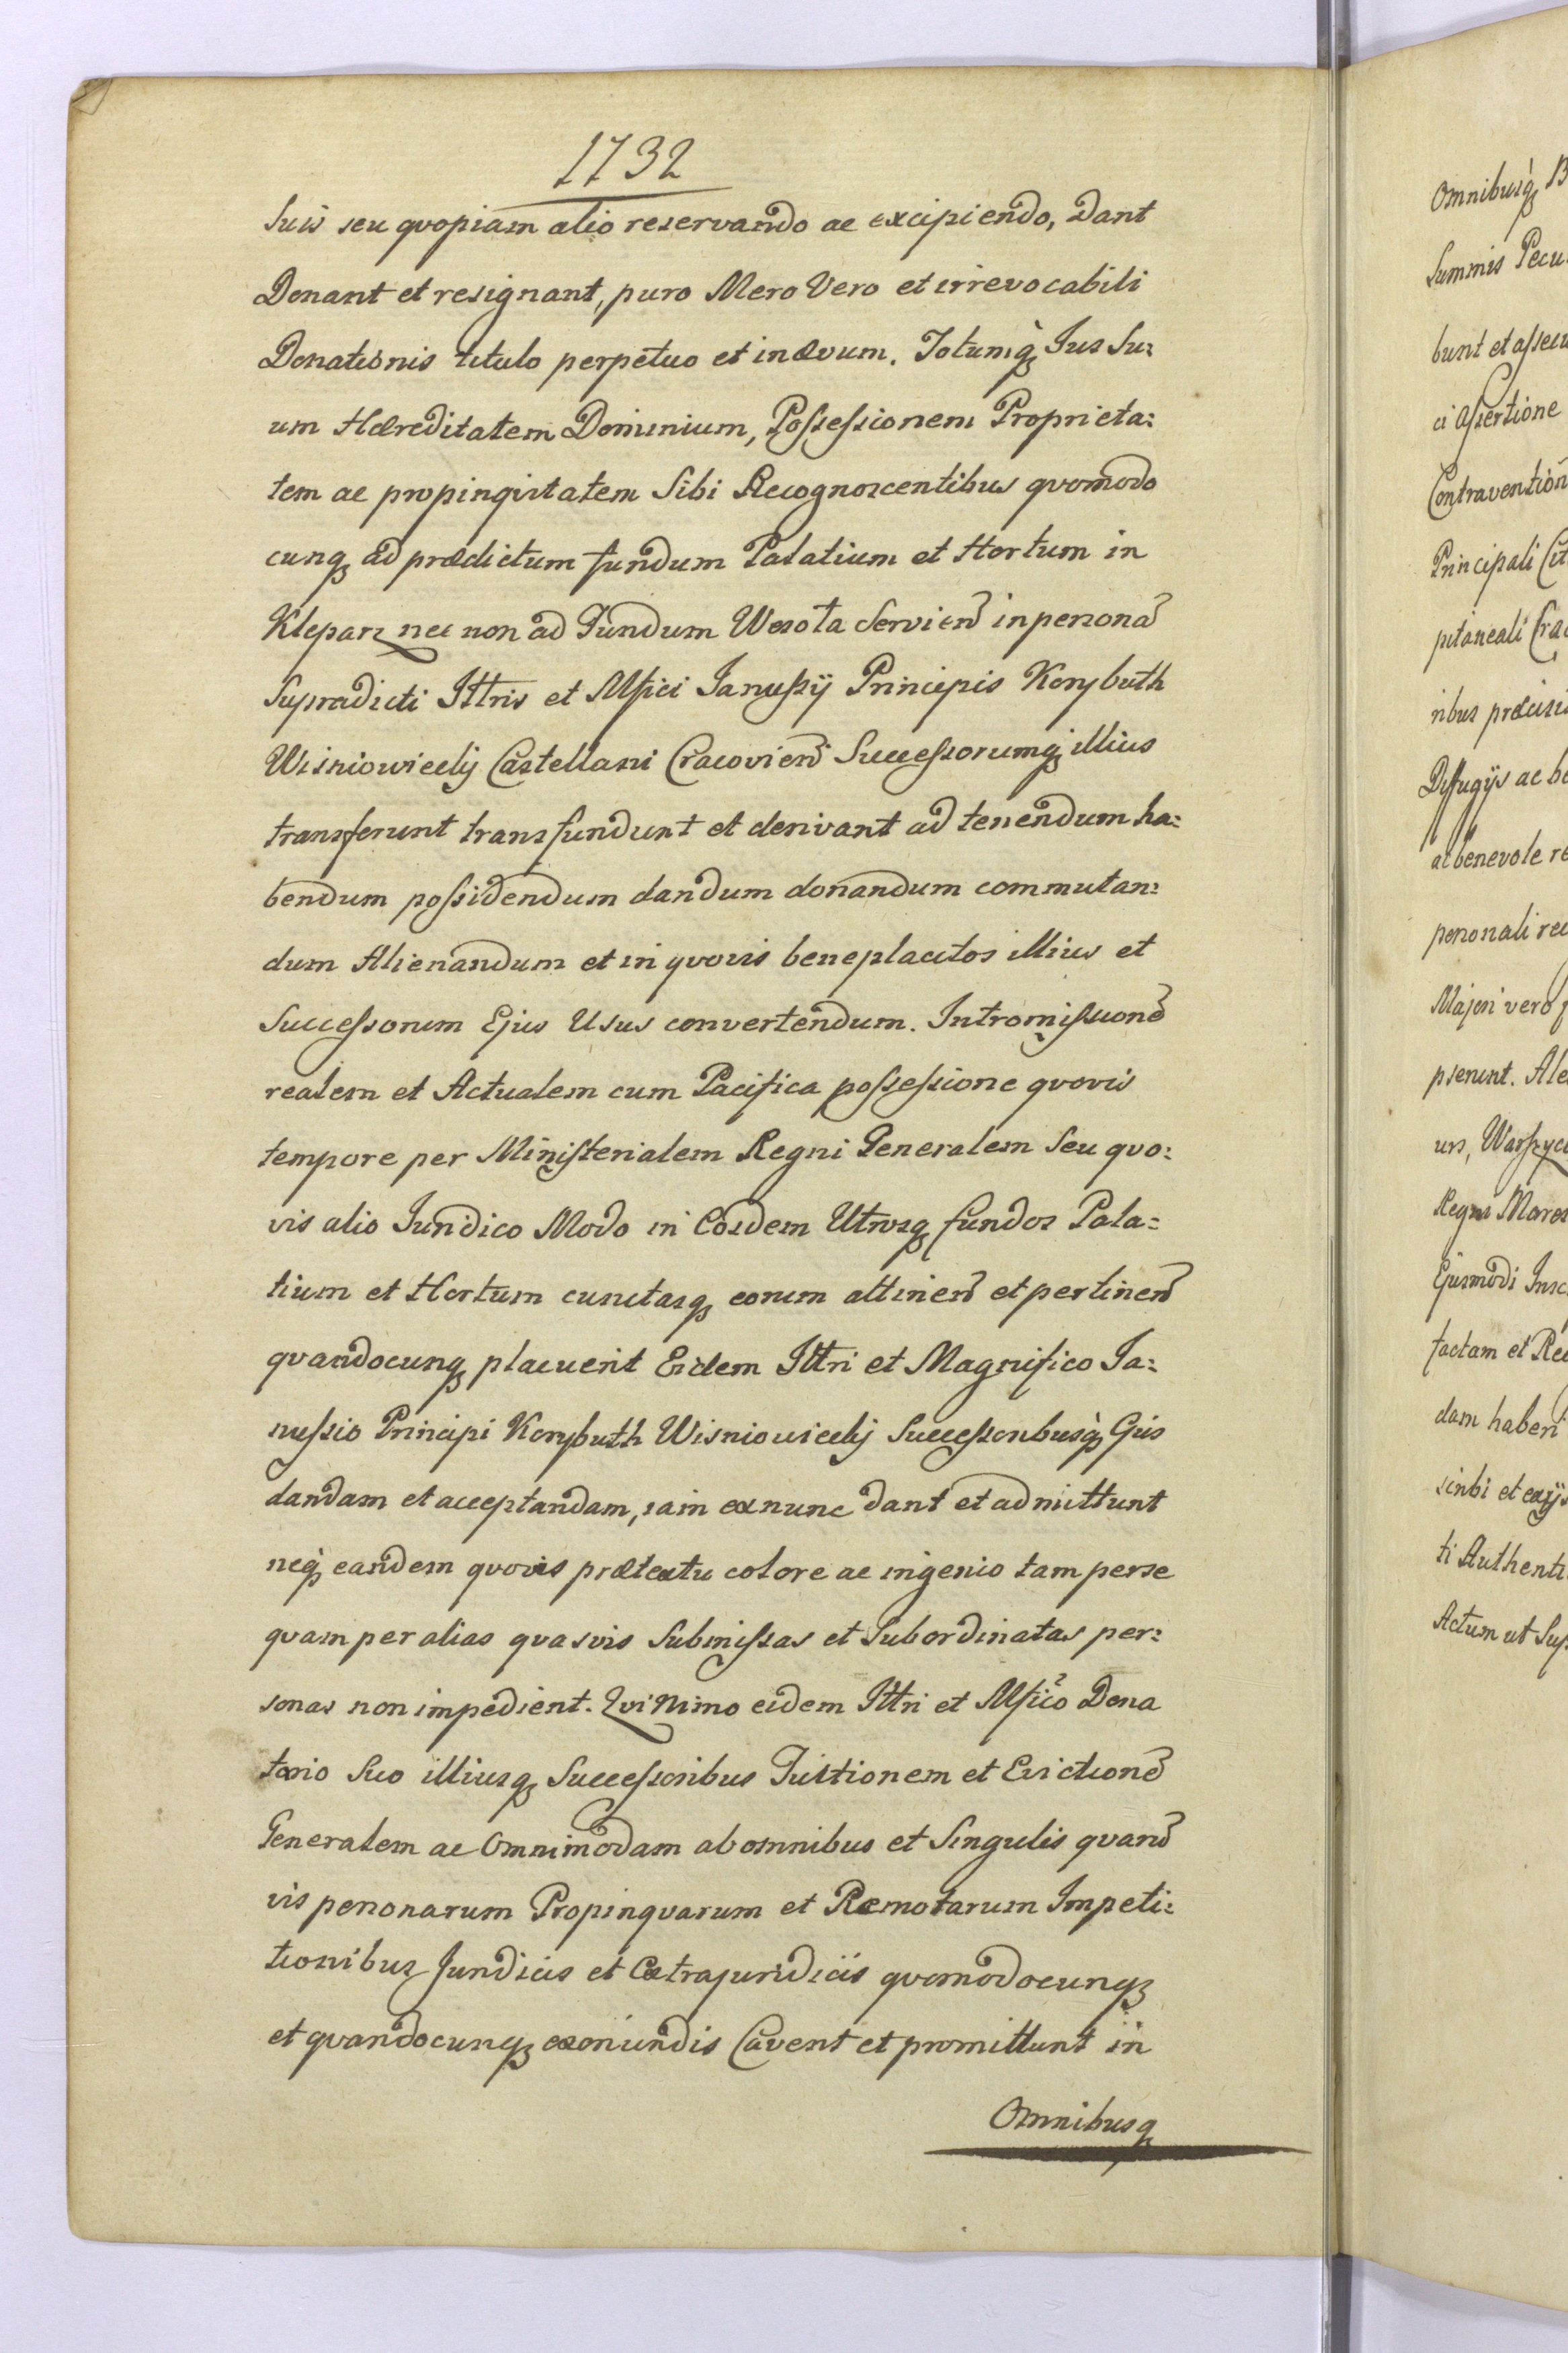 1732
Suis seu qvopiam alio reservando ac excipiendo, Dant
Donant et resignant, puro Mero Vero et irrevocabili
Donationis titulo perpetuo et in ævum. Totumq̀ꝫ Jus Su:
um Hæreditatem Dominium, Possessionem Proprieta:
tem ac propinqvitatem Sibi Recognoscentibus qvomodo
cunqꝫ ad prædictum fundum Palatium et Hortum in
Kleparz nec non ad Fundum Wesoła Servień in personã
Supradicti Jllris et Mfici Janussij Principis Korybuth
Wisniowiecky Castellani Cracovień Successorumqꝫ illius
transferunt transfundunt et derivant ad tenendum ha:
bendum possidendum dandum donandum commutan:
dum Alienandum et in qvovis beneplacitos illius et
Successorum Ejus Usus convertendum. Intromissionẽ
realem et Actualem cum Pacifica possessione qvovis
tempore per Ministerialem Regni Generalem Seu qvo:
vis alio Juridico Modo in Eosdem Utrosqꝫ fundos Pala:
tium et Hortum cunctasqꝫ eorum attineñ et pertineñ
qvandocunqꝫ placuerit Eidem Jllri et Magnifico Ja:
nussio Principi Korybuth Wisniowiecky Successoribusq̀ꝫ Ejus
dandam et acceptandam, iam ex nunc dant et admittunt
neq̀ꝫ eandem qvovis prætextu colore ac ingenio tam per se
qvam per alias qvasvis Submissas et Subordinatas per:
sonas non impedient. Qvinimo eidem Jllri et Mficõ Dona
tario Suo illiusqꝫ Successoribus Tuitionem et Evictionẽ
Generalem ac Omnimodam ab omnibus et Singulis qvarũ
vis personarum Propinqvarum et Remotarum Impeti:
tionibus Juridicis et Extrajuridiciis qvomodocunqꝫ
et qvandocunqꝫ exoriundis Cavent et promittunt in
Omnibusqꝫ
Omnibusq̀ꝫ
Summis Pecu
bunt et assecu
ci Assertione
Contravention
Principali
pitaneali
ribus præcisis
Diffugijs ac be
ac benevole re
personali
Majori vero
pserint. Ale
us, Warszyc
Regni
Ejusmodi
factam et Rec
dam haberi
scribi et
ti Authenti
Actum ut Sup